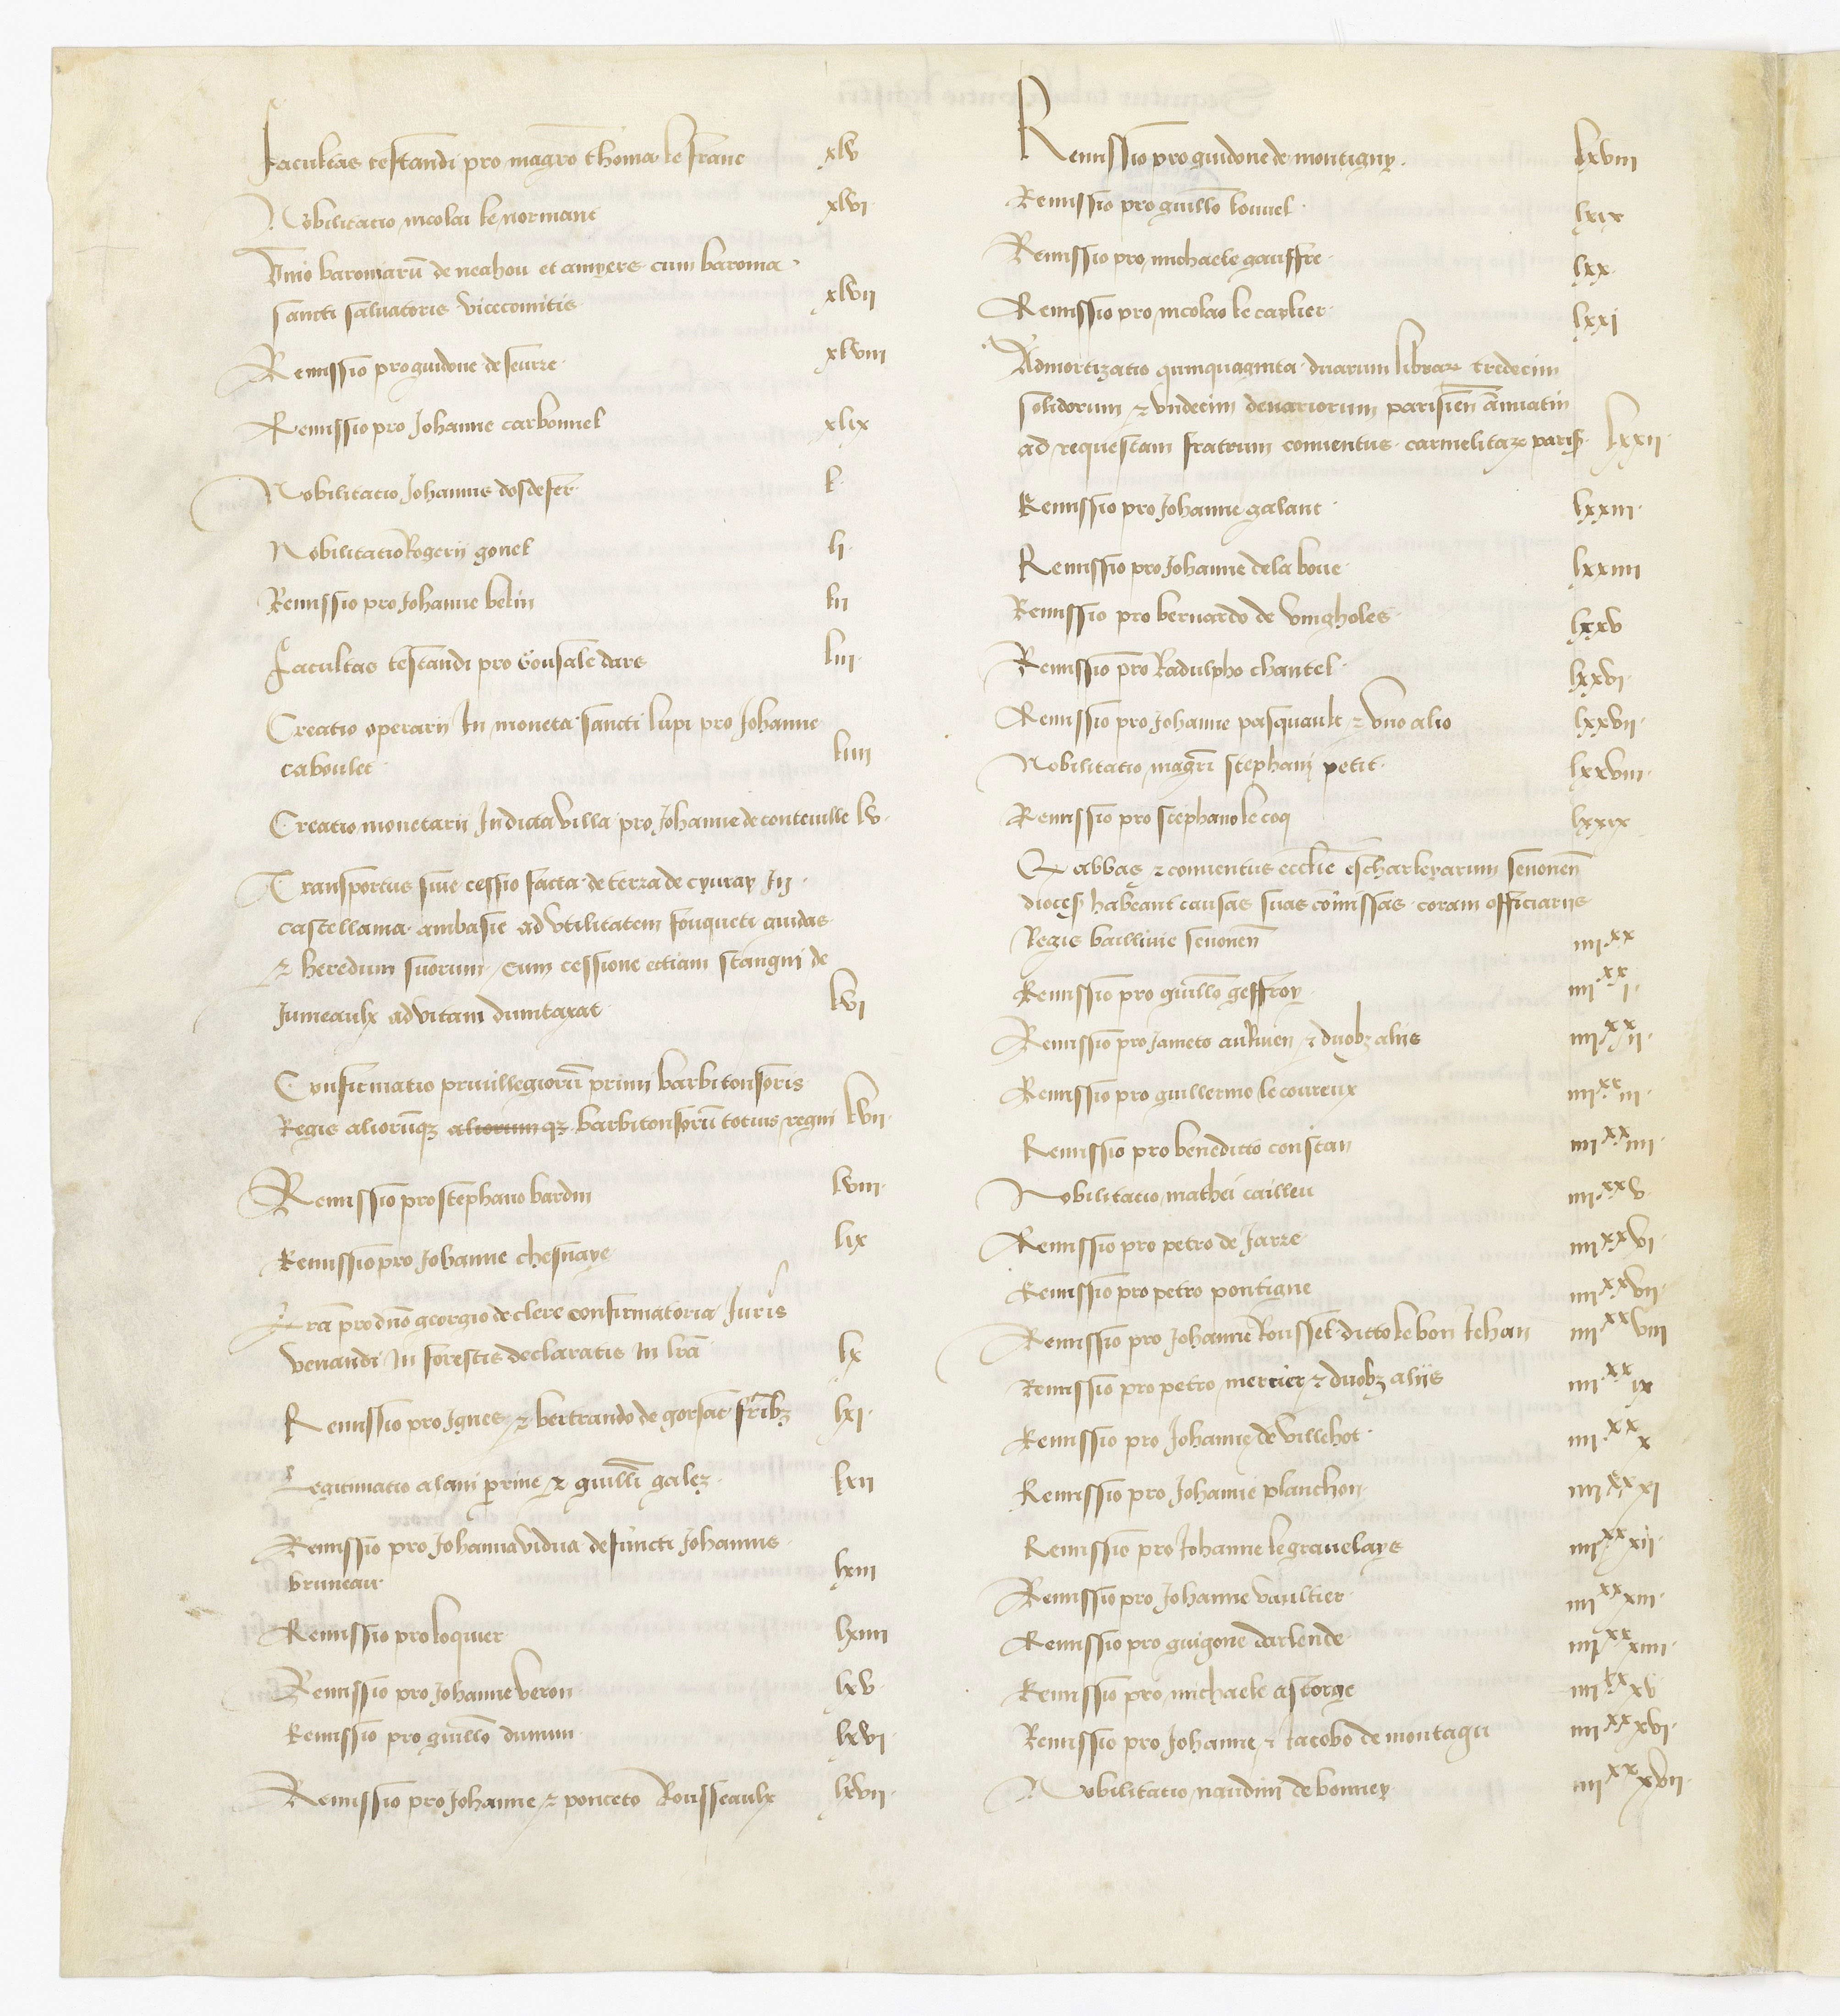 Facultas testandi pro magrō thoma le franc xlv
Nobilitatio nicolai le normant xlvi
Unio baroniarū de neahou et amyers cum baronia
sancti salvatoris vicecomitis xlvii
Remissio pro guidone de seurre xlviii
Remissio pro Johanne carbonnel xlix
Nobilitatio Johannis dosdefer l
Nobilitatio Rogerii gonel li
Remissio pro Johanne belin lii
Facultas testandi pro Gonsale dars liii
Creatio operarii In moneta sancti lupi pro Johanne
caboulet liiii
Creatio monetarii In dicta villa pro Johanne de conteville lv
Transportus sive cessio facta de terra de cyvray In
castellania ambasie ad utilitatem fouqueti guidas
⁊ heredum suorum cum cessione ectiam stangni de
Jumeaulx ad vitam dumtaxat lvi
Confirmatio privillegiorū primi barbitonsoris
Regis aliorūqꝫ aliorumqꝫ barbitonsorū totius regni lvii
Remissio pro stephano bardin lviii
Remissio pro Johanne chesnaye lix
Lr̄a pro dn̄o georgio de clere confirmatoria Juris
venandi In forestis declaratis In lr̄a lx
Remissio pro Ignes ⁊ bertrando de gorsac fr̄ibꝫ lxi
Legitimatio alani perine ⁊ guill̄i galeꝫ lxii
Remissio pro Johanna vidua defuncti Johannis
bruneau lxiii
Remissio pro loquier lxiiii
Remissio pro Johanne veron lxv
Remissio pro guill̄o dumm lxvi
Remissio pro Johanne ⁊ ponceto Rousseaulx lxvii
Remissio pro guidone de montigny lxviii
Remissio pro guill̄o louvel lxix
Remissio pro michaele gauffre lxx
Remissio pro nicolao le carlier lxxi
Admortizatio quinquaginta duarum libraꝝ tredecim
solidorum ⁊ undecim denariorum parisien̄ annuatin
ad requestam fratrum conventus carmelitaꝝ paris̄ lxxii
Remissio pro Johanne galant lxxiii
Remissio pro Johanne de la boue lxxiiii
Remissio pro bernardo de vingholes lxxv
Remissio pro Radulpho chantel lxxvi
Remissio pro Johanne pasquault ⁊ uno alio lxxvii
Nobilitatio magr̄i stephani petit lxxviii
Remissio pro stephano le coq lxxix
Qꝫ abbas ⁊ conventus eccl̄ie escharleyarum senonen̄
dioces̄ habeant causas suas com̄issas coram officiariis
Regis baillivie senonen̄ iiii xx
Remissio pro guill̄o geffroy iiii xx i
Remissio pro Jameto aurluen ⁊ duobꝫ aliis iiii xx ii
Remissio pro guillermo le coureux iiii xx iii
Remissio pro benedicto constan iiii xx iiii
Nobilitatio mathei cailleu iiii xx v
Remissio pro petro de Jarze iiii xx vi
Remissio pro petro pontigne iiii xx vii
Remissio pro Johanne Roussel dicto le bon Jehan iiii xx viii
Remissio pro petro mercier ⁊ duobꝫ aliis iiii xx ix
Remissio pro Johanne de villehot iiii xx x
Remissio pro Johanne planchon iiii xx xi
Remissio pro Johanne le gravelays iiii xx xii
Remissio pro Johanne vaultier iiii xx xiii
Remissio pro guigone darlende iiii xx xiiii
Remissio pro michaele astorge iiii xx xv
Remissio pro Johanne ⁊ Jacobo de montagu iiii xx xvi
Nobilitatio naudini de bonney iiii xx xvii